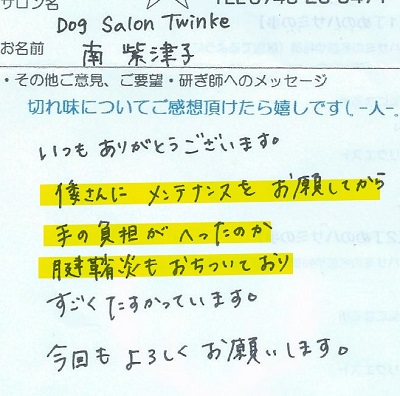 サロン名 Dog Salon Twinke
お名前 南 紫津子
・その他ご意見、ご要望・研ぎ師へのメッセージ
切れ味についてご感想頂けたら嬉しです(_ -人-
いつもありがとうございます。
倭さんに メンテナンスを お願してから
手の負担が へったのか
腱鞘炎も おちついており
すごく たすかっています。
今回も よろしく お願いします。